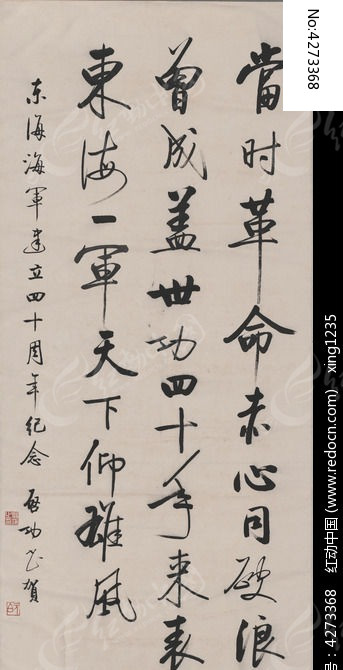 No:4273368
當时革命赤心同破浪
曾成盖世功四十年来表
東海一軍天下仰雄风
东海海軍建立四十周年纪念 啓功书贺
号: 4273368 红动中国 (www.redocn.com) xing1235